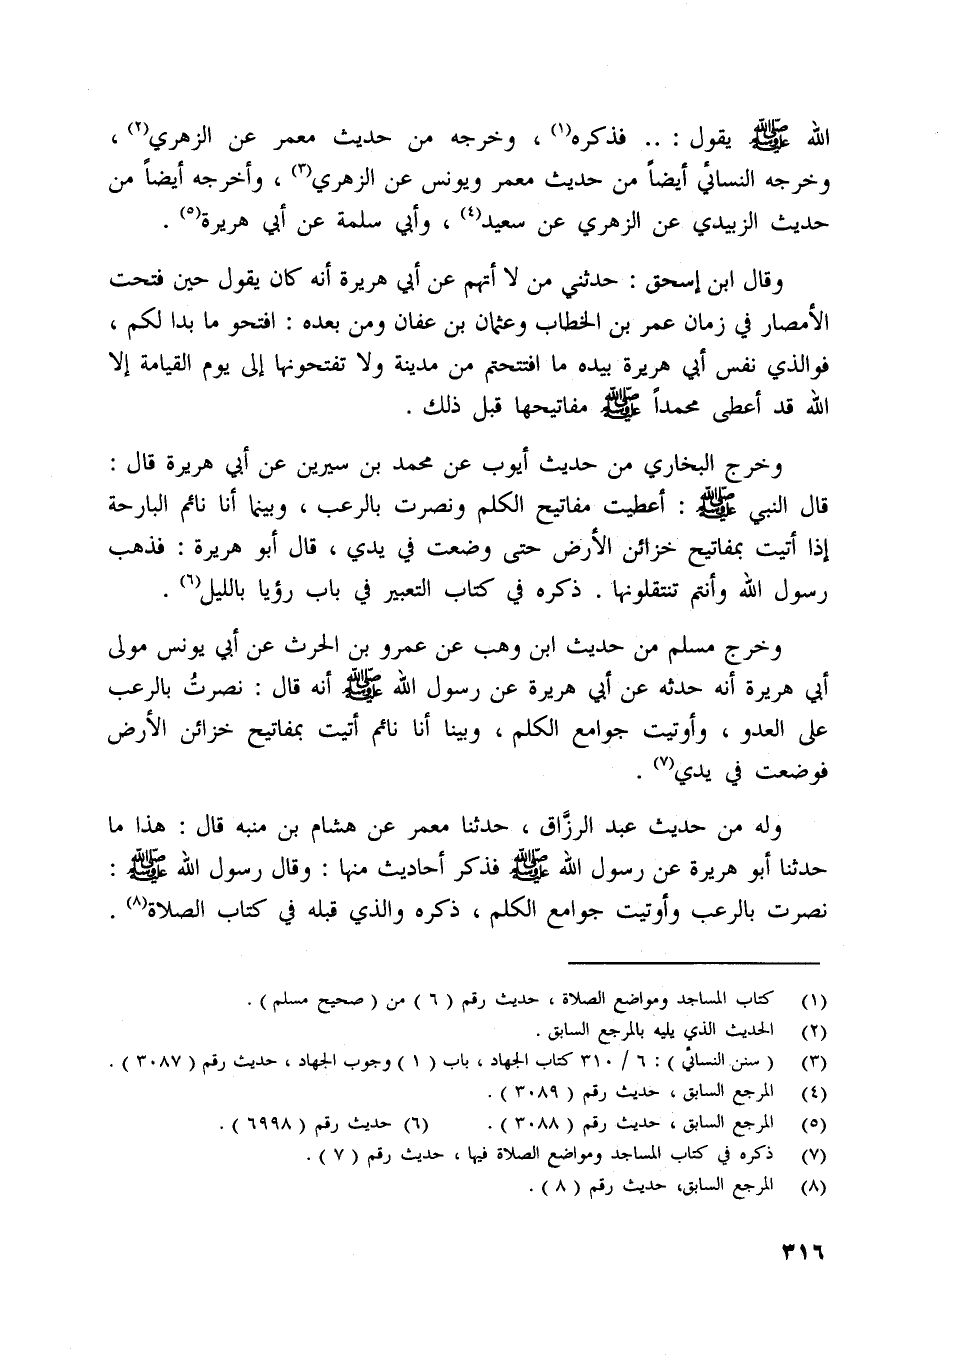 الله ﷺ يقول : .. فذكره(١) ، وخرجه من حديث معمر عن الزهري(٢) ،
وخرجه النسائي أيضاً من حديث معمر ويونس عن الزهري(٣) ، وأخرجه أيضاً من
حديث الزبيدي عن الزهري عن سعيد(٤) ، وأبي سلمة عن أبي هريرة(٥) .
وقال ابن إسحق : حدثني من لا أتهم عن أبي هريرة أنه كان يقول حين فتحت
الأمصار في زمان عمر بن الخطاب وعثمان بن عفان ومن بعده : افتحو ما بدا لكم ،
فوالذي نفس أبي هريرة بيده ما افتتحتم من مدينة ولا تفتحونها إلى يوم القيامة إلا
الله قد أعطى محمداً ﷺ مفاتيحها قبل ذلك .
وخرج البخاري من حديث أيوب عن محمد بن سيرين عن أبي هريرة قال :
قال النبي ﷺ : أعطيت مفاتيح الكلم ونصرت بالرعب ، وبينما أنا نائم البارحة
إذا أتيت بمفاتيح خزائن الأرض حتى وضعت في يدي ، قال أبو هريرة : فذهب
رسول الله وأنتم تنتقلونها . ذكره في كتاب التعبير في باب رؤيا بالليل(٦) .
وخرج مسلم من حديث ابن وهب عن عمرو بن الحرث عن أبي يونس مولى
أبي هريرة أنه حدثه عن أبي هريرة عن رسول الله ﷺ أنه قال : نصرتُ بالرعب
على العدو ، وأوتيت جوامع الكلم ، وبينا أنا نائم أتيت بمفاتيح خزائن الأرض
فوضعت في يدي(٧) .
وله من حديث عبد الرزَّاق ، حدثنا معمر عن هشام بن منبه قال : هذا ما
حدثنا أبو هريرة عن رسول الله ﷺ فذكر أحاديث منها : وقال رسول الله ﷺ :
نصرت بالرعب وأوتيت جوامع الكلم ، ذكره والذي قبله في كتاب الصلاة(٨) .
(١) كتاب المساجد ومواضع الصلاة ، حديث رقم ( ٦ ) من ( صحيح مسلم ) .
(٢) الحديث الذي يليه بالمرجع السابق .
(٣) ( سنن النسائي ) : ٦ / ٣١٠ كتاب الجهاد ، باب ( ١ ) وجوب الجهاد ، حديث رقم ( ٣٠٨٧ ) .
(٤) المرجع السابق ، حديث رقم ( ٣٠٨٩ ) .
(٥) المرجع السابق ، حديث رقم ( ٣٠٨٨ ) . (٦) حديث رقم ( ٦٩٩٨ ) .
(٧) ذكره في كتاب المساجد ومواضع الصلاة فيها ، حديث رقم ( ٧ ) .
(٨) المرجع السابق، حديث رقم ( ٨ ) .
٣١٦